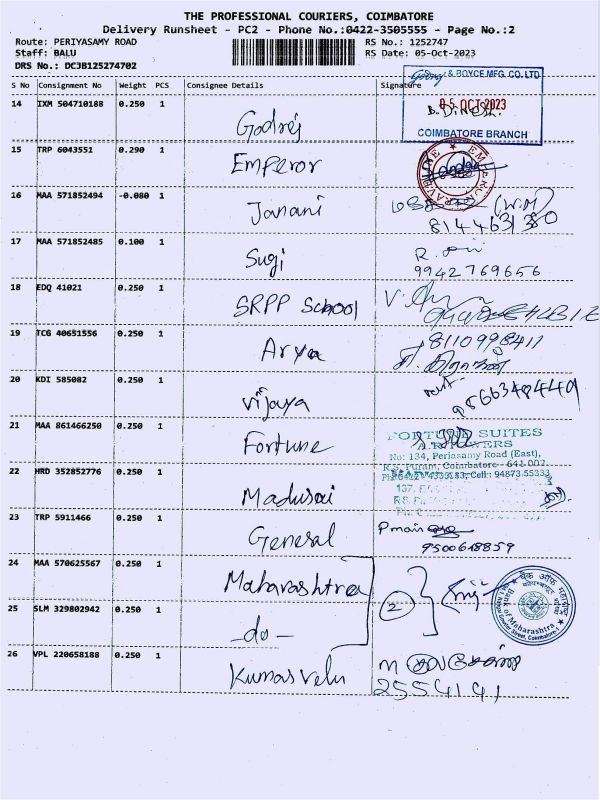 THE PROFESSIONAL COURIERS, COIMBATORE
Delivery Runsheet - PC2 - Phone No.:0422-3505555 - Page No.:2
Route: PERIYASAMY ROAD RS No.: 1252747
Staff: BALU RS Date: 05-Oct-2023
DRS No.: DCJB125274702
S No Consignment No Weight PCS Consignee Details Signature
Godrej & BOYCE MFG. CO. LTD
14 IXM 504710188 0.250 1 Godrej
05 OCT 2023
COIMBATORE BRANCH
15 TRP 6043551 0.290 1 Emperor
16 MAA 571852494 -0.080 1 Janani
8144631380
17 MAA 571852485 0.100 1 Sugi
9942769656
18 EDQ 41021 0.250 1 SRPP School
19 TCG 40651556 0.250 1 Arya 8110998411
20 KDI 585082 0.250 1 vijaya 9566348449
21 MAA 861466250 0.250 1 Fortune
FORTUNE SUITES
No: 134, Periasamy Road (East),
R.S. Puram, Coimbatore - 641 002
Cell : 94873 55333
22 HRD 352852776 0.250 1 Madusai
23 TRP 5911466 0.250 1 General
9500618859
24 MAA 570625567 0.250 1 Maharashtra 2
Bank of Maharashtra
25 SLM 329802942 0.250 1 -do-
26 VPL 220658188 0.250 1 Kumasvelu
2554141